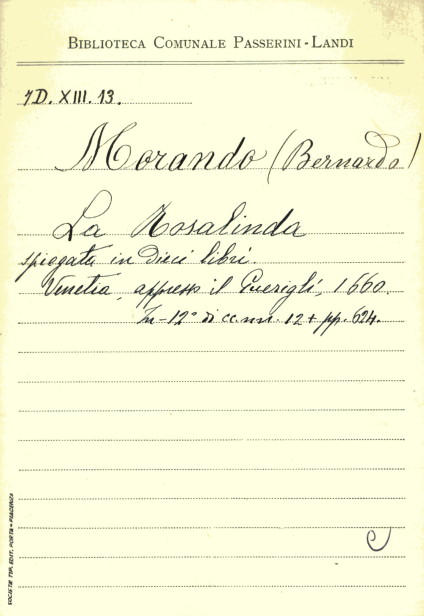 BIBLIOTECA COMUNALE PASSERINI-LANDI
7D. XIII. 13.
Morando (Bernardo)
La Rosalinda
spiegata in dieci libri.
Venetia, appresso il Guerigli, 1660.
In-12° di cc. nn. 12 + pp. 624.
SOCIETÀ TIP. EDIT. PORTA - PIACENZA